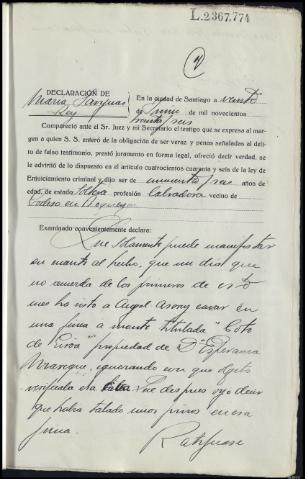 L.2367.774
DECLARACIÓN DE
Maria
Rey
En la ciudad de Santiago a veinte
de Junio de mil novecientos
treinta y seis
Compareció ante el Sr. Juez y mi Secretario el testigo que se expresa al margen
a quien S. S. enteró de la obligación de ser veraz y penas señaladas al delito
de falso testimonio, prestó juramento en forma legal, ofreció decir verdad, se
le advirtió de lo dispuesto en el artículo cuatrocientos cuarenta y seis de la ley de
Enjuiciamiento criminal y dijo ser de cincuenta y tres años de
edad, de estado soltera profesión labradora vecino de
Examinado convenientemente declara:
Que solamente puede manifestar
en cuanto al hecho, que un dia que
no recuerda de los primeros de este
mes ha visto a Angel cavar en
una finca a monte titulada "Coto
de propiedad de Dª Esperanza
ignorando con que objeto
verificaba ella. Que despues oyo decir
que habia talado unos pinos en esa
finca.